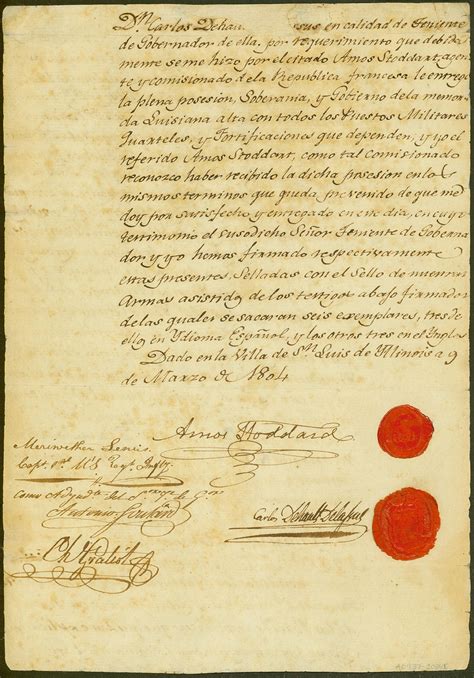 Dn. Carlos Dehau sus en calidad de Teniente
de Gobernador de ella, por requerimiento que debida
mente se me hizo por el citado Amos Stoddart, agen
te y comisionado de la Republica francesa le entregé
la plena posesion, Soberania, y Gobierno de la memora
da Luisiana alta con todos los Puestos Militares
Quarteles, y Fortificaciones que dependen, y yo el
referido Amos Stoddart, como tal Comisionado
reconozco haber recibido la dicha posesion en lo
mismos terminos que queda prevenido de que me
doy por satisfecho y entregado en este dia, en cuyo
testimonio el susodicho Señor Teniente de Goberna
dor y yo hemos firmado respectivamente
estas presentes, Selladas con el Sello de nuestras
Armas asistido de los testigos abajo firmados
de las quales se sacaran seis exemplares, tres de
ellos en Ydioma Español, y los otros tres en el Ingles
Dado en la Villa de Sn. Luis de Ylinois a 9
de Marzo de 1804
Amos Stoddard
Meriwether Lewis
Capt. 1st. U'S. Regt. Infty.
Como Ayudte. del
Antonio Soulard
Carlos Dehault Delassus
Ch. Gratiot